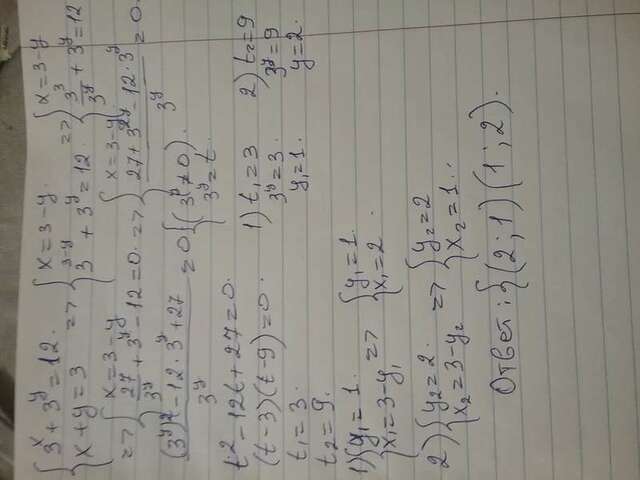 { 3^x + 3^y = 12. x + y = 3 => { x = 3 - y. 3^{3-y} + 3^y = 12. => { x = 3 - y 3^3/3^y + 3^y = 12
=> { x = 3 - y 27/3^y + 3^y - 12 = 0. => { x = 3 - y (27 + 3^{2y} - 12 · 3^y)/3^y = 0.
((3^y)^2 - 12 · 3^y + 27)/3^y = 0 { (3^y ≠ 0). 3^y = t.
t^2 - 12t + 27 = 0.
(t - 3)(t - 9) = 0.
t_1 = 3.
t_2 = 9.
1) t_1 = 3
3^y = 3.
y_1 = 1.
2) t_2 = 9
3^y = 9
y = 2.
1) { y_1 = 1. x_1 = 3 - y_1 => { y_1 = 1. x_1 = 2.
2) { y_2 = 2. x_2 = 3 - y_2 => { y_2 = 2 x_2 = 1.
Ответ: {(2; 1) (1; 2).